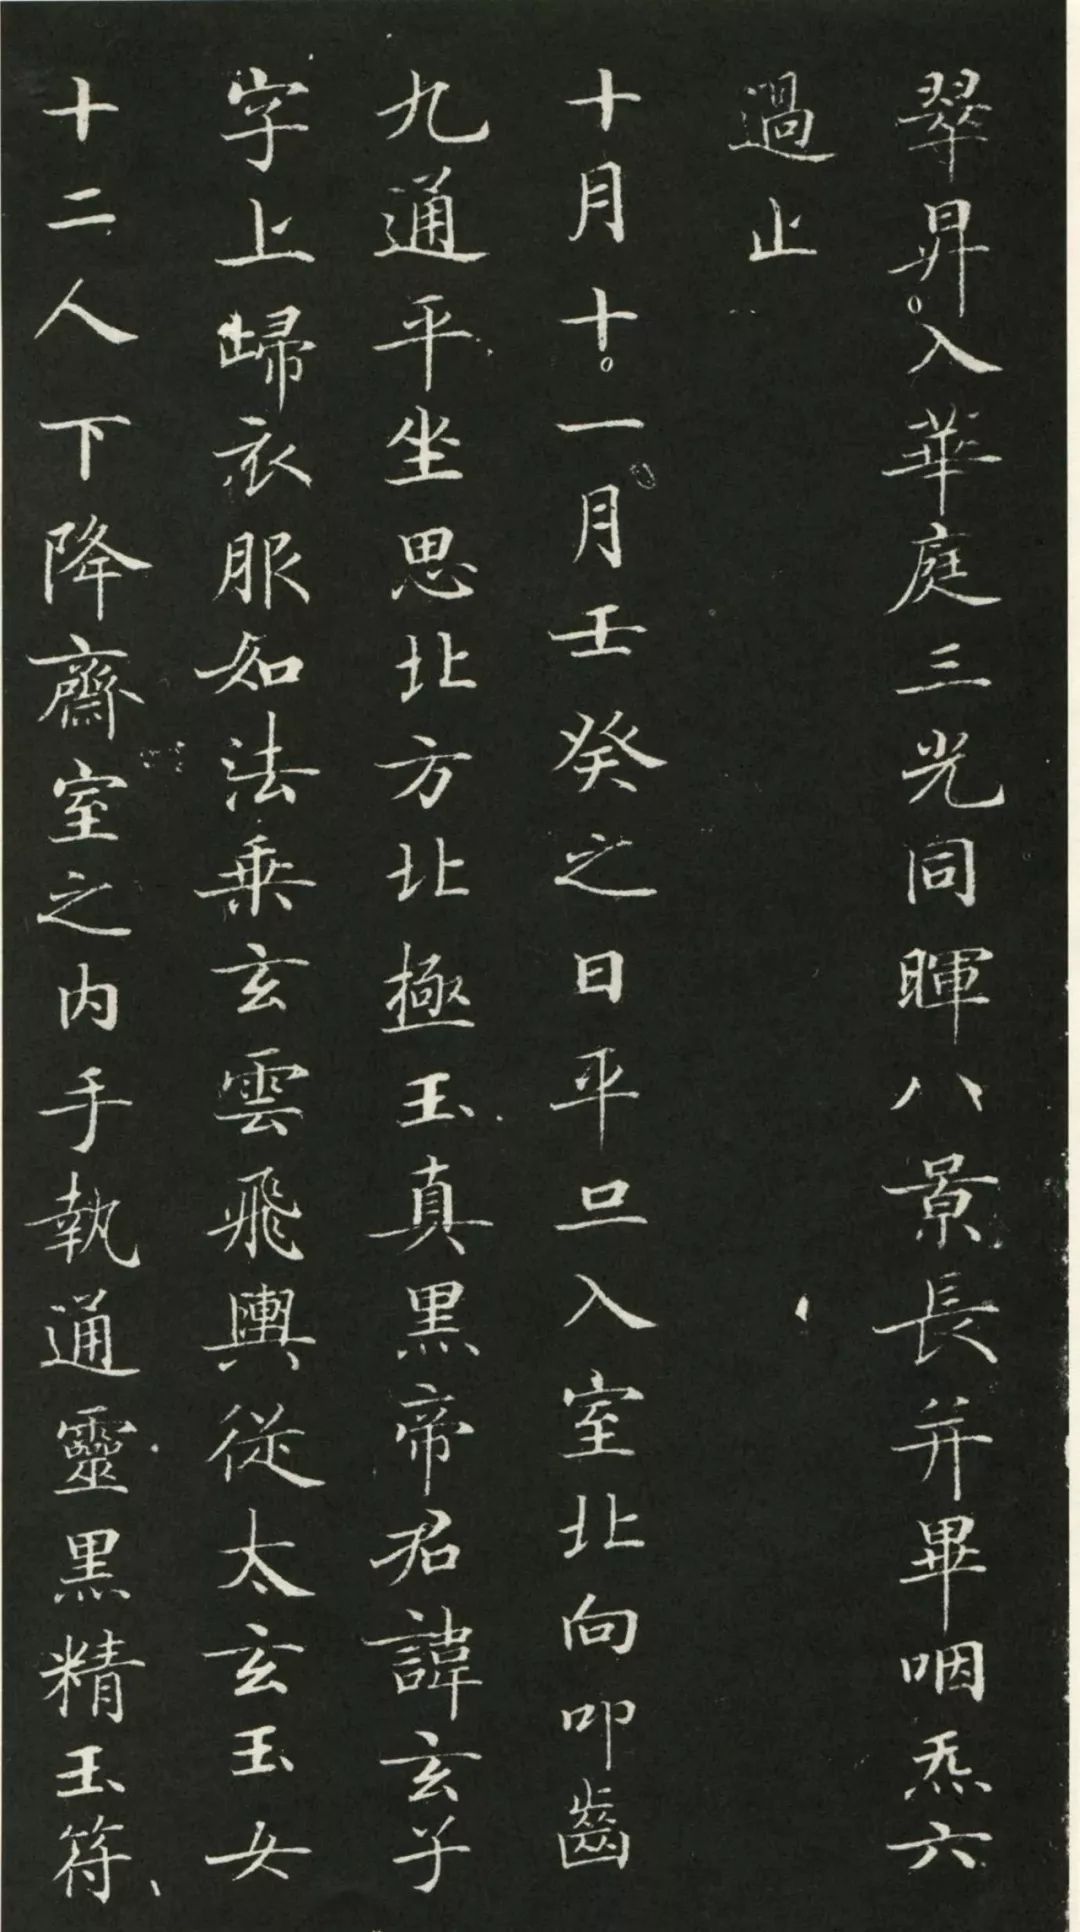 翠昇入華庭三光同暉八景長并畢咽炁六
過止
十月十一月壬癸之日平旦入室北向叩齒
九通平坐思北方北極玉真黑帝君諱玄子
字上歸衣服如法乗玄雲飛輿従太玄玉女
十二人下降齋室之内手執通靈黑精玉符